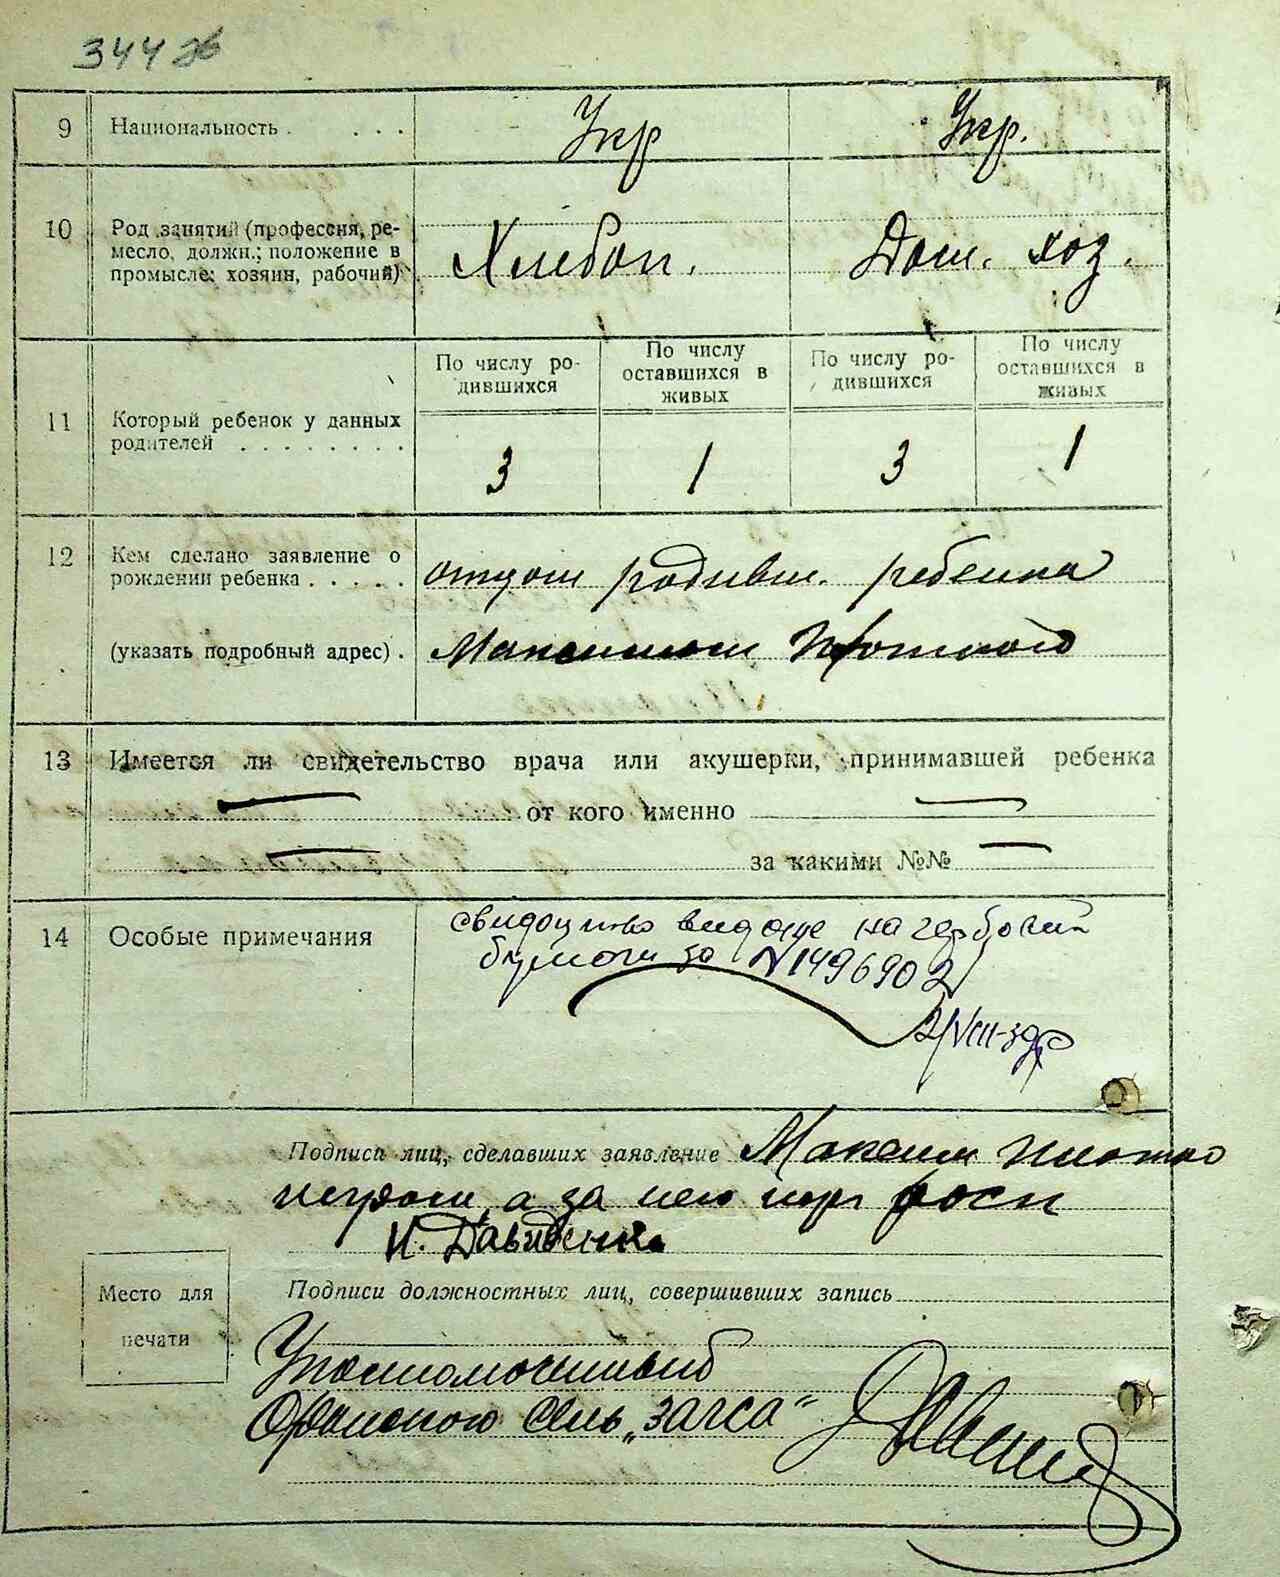 344 об
9 Национальность . . . . Укр Укр.
10 Род занятий (профессия, ре-
месло, должн.; положение в
промысле: хозяин, рабочий) Хлебоп. Дом. хоз.
По числу ро-
дившихся
По числу
оставшихся в
живых
По числу ро-
дившихся
По числу
оставшихся в
живых
11 Который ребенок у данных
родителей . . . . . . . . 3 1 3 1
12 Кем сделано заявление о
рождении ребенка . . . . . отцом родивш. ребенка
(указать подробный адрес) .
13 Имеется ли свидетельство врача или акушерки, принимавшей ребенка
— от кого именно —
— за какими №№ —
14 Особые примечания свидоцтво видане на гербовий
бумоги за N 1496902
2/VIII-
Подписи лиц, сделавших заявление Максим
неграм, а за него
И. Давиденко
Подписи должностных лиц, совершивших запись
Место для
печати
Уполномоченный
сель „загса“